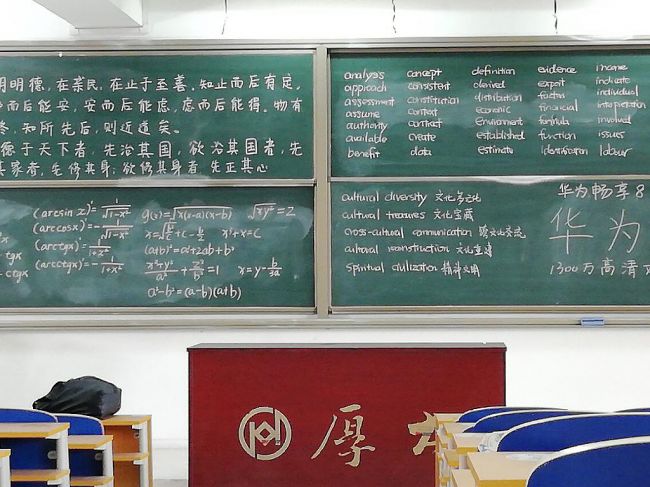 明明德，在亲民，在止于至善。知止而后有定，
而后能安，安而后能虑，虑而后能得。物有
终，知所先后，则近道矣。
德于天下者，先治其国，欲治其国者，先
其家者，先修其身；欲修其身者，先正其心
analysis concept definition evidence income
approach consistent derived export indicate
assessment constitution distribution factors individual
assume context economic financial interpretation
authority contract Environment formula involved
available create established function issues
benefit data estimate identification labour
(arcsin x)'=1/√1-x²
(arccosx)'=-1/√1-x²
(arctgx)'=1/1+x²
(arcctgx)'=-1/1+x²
tgx
ctgx
√xy²=2
x²+x=c
(a+b)²=a²+2ab+b²
x=y-b/3a
a²-b²=(a-b)(a+b)
cultural diversity 文化多元化
cultural treasures 文化宝藏
cross-cultural communication 跨文化交流
cultural reconstruction 文化重建
Spiritual civilization 精神文明
华为畅享8
华为
1300万高清
厚